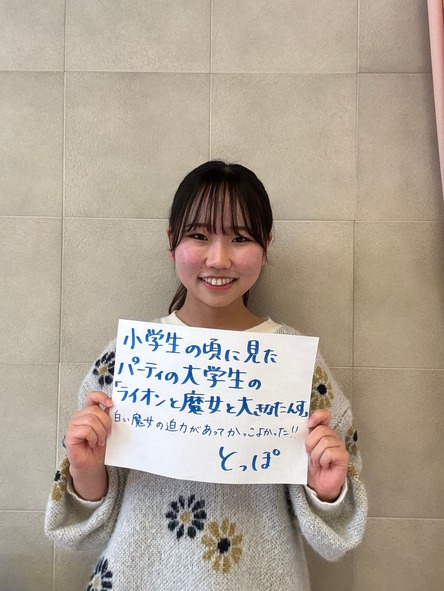 小学生の頃に見た
パーティの大学生の
「ライオンと魔女と大きなたんす」
白い魔女の迫力があってかっこよかった!!
とっぽ